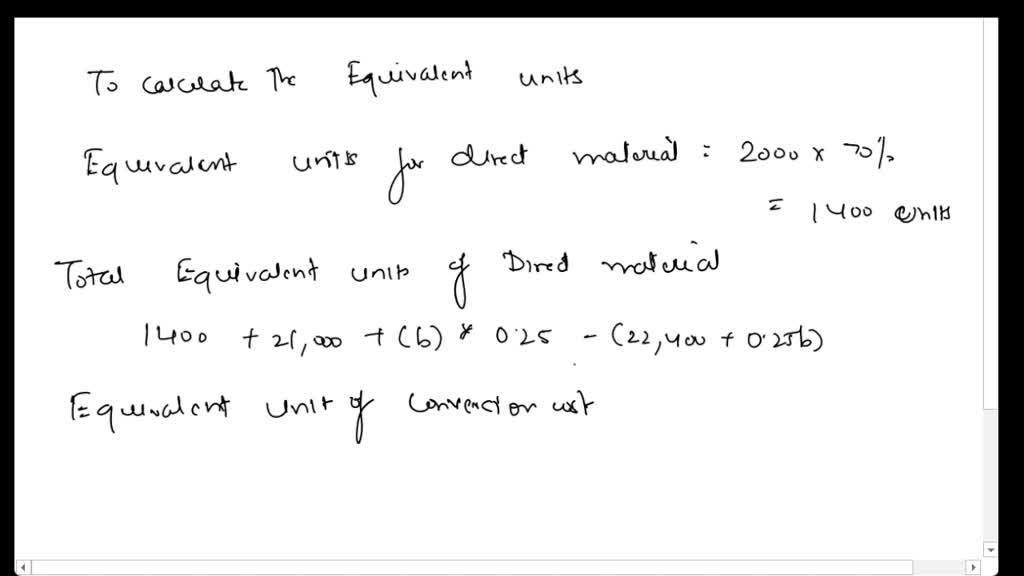 To calculate The Equivalent units
Equivalent units for direct material = 2000 x 70%
= 1400 units
Total Equivalent units of Direct material
1400 + 21,000 + (b) * 0.25 - (22,400 + 0.25b)
Equivalent unit of conversion cost